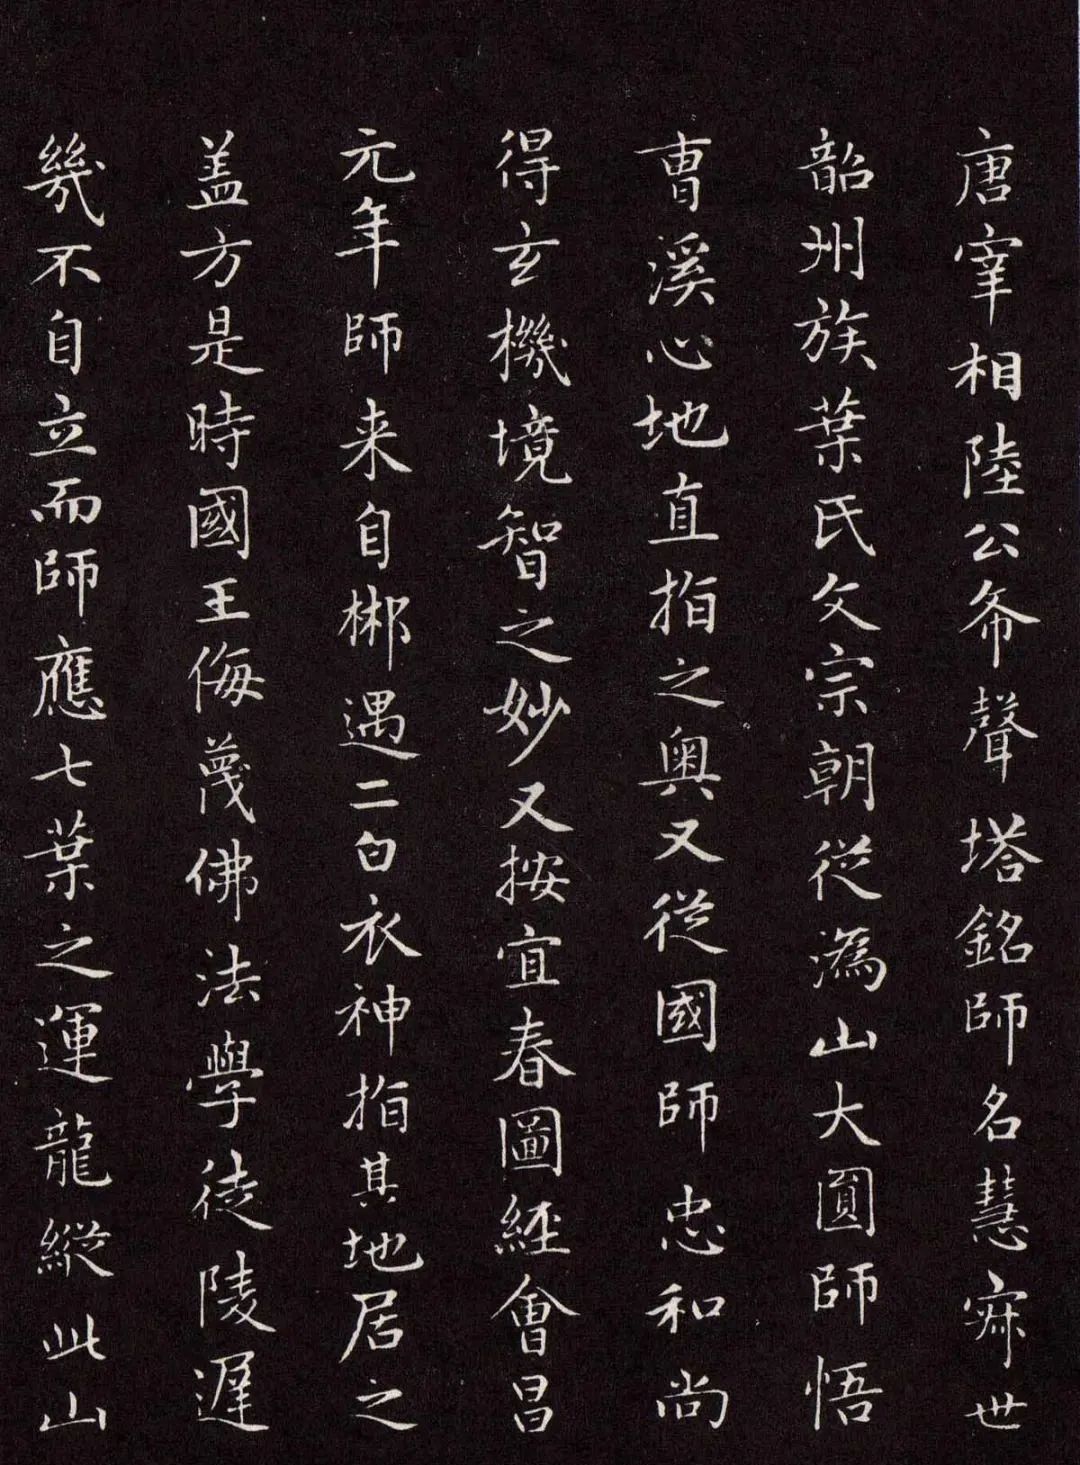 唐宰相陸公希聲塔銘師名慧寂世
韶州族葉氏文宗朝從溈山大圓師悟
曹溪心地直指之奧又從國師忠和尚
得玄機境智之妙又按宜春圖經會昌
元年師来自郴遇二白衣神指其地居之
盖方是時國王侮蔑佛法學徒陵遲
幾不自立而師應七葉之運龍縱此山